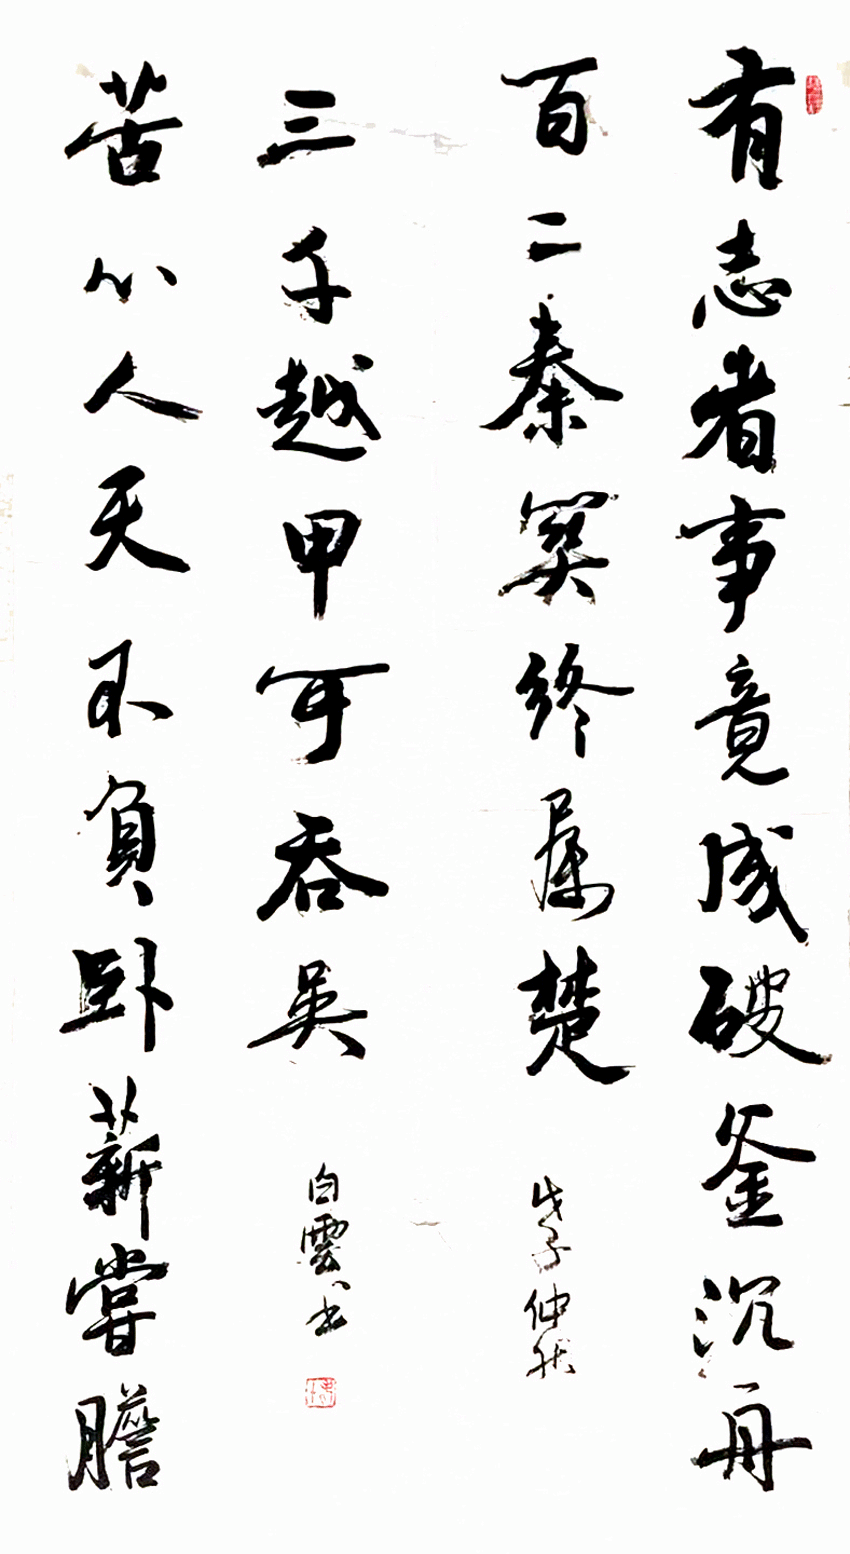 有志者事竟成破釜沉舟
百二秦関終属楚
戊子仲秋
苦心人天不負卧薪嘗膽
三千越甲可吞吳
白雲書